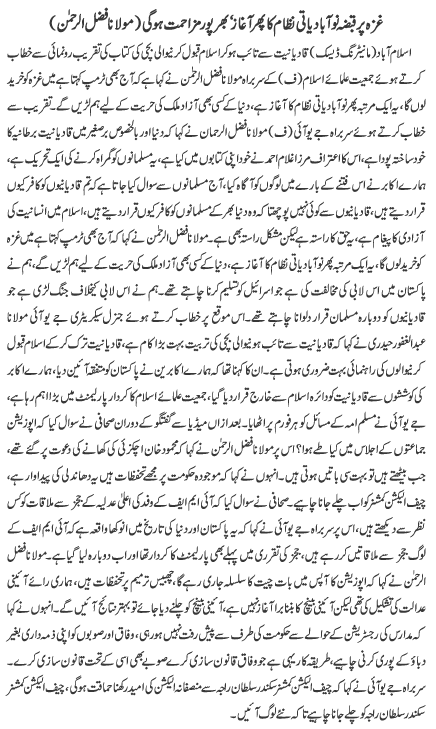 غزہ پر قبضہ نوآبادیاتی نظام کا پھر آغاز، بھرپور مزاحمت ہوگی (مولانا فضل الرحمٰن)
اسلام آباد (مانیٹرنگ ڈیسک) قادیانیت سے تائب ہو کر اسلام قبول کرنیوالی بچی کی کتاب کی تقریب رونمائی سے خطاب
کرتے ہوئے جمعیت علمائے اسلام (ف) کے سربراہ مولانا فضل الرحمٰن نے کہا کہ آج بھی ٹرمپ کہتا ہے میں غزہ کو خرید
لوں گا، یہ ایک مرتبہ پھر نوآبادیاتی نظام کا آغاز ہے، دنیا کے کسی بھی آزاد ملک کی حریت کے لیے ہم لڑیں گے۔ تقریب سے
خطاب کرتے ہوئے سربراہ جے یو آئی (ف) مولانا فضل الرحمان نے کہا کہ دنیا اور بالخصوص برصغیر میں قادیانیت برطانیہ کا
خود ساختہ پودا ہے، اس کا اعتراف مرزا غلام احمد نے خود اپنی کتابوں میں کیا ہے، یہ مسلمانوں کو گمراہ کرنے کی ایک تحریک ہے،
ہمارے اکابر نے اس فتنے کے بارے میں لوگوں کو آگاہ کیا، آج مسلمانوں سے سوال کیا جاتا ہے کہ تم قادیانیوں کو کافر کیوں
قرار دیتے ہیں، قادیانیوں سے کوئی نہیں پوچھتا کہ وہ دنیا بھر کے مسلمانوں کو کافر کیوں قرار دیتے ہیں، اسلام میں انسانیت کی
آزادی کا پیغام ہے، یہ حق کا راستہ ہے لیکن مشکل راستہ بھی ہے۔ مولانا فضل الرحمٰن نے کہا کہ آج بھی ٹرمپ کہتا ہے میں غزہ
کو خرید لوں گا، یہ ایک مرتبہ پھر نوآبادیاتی نظام کا آغاز ہے، دنیا کے کسی بھی آزاد ملک کی حریت کے لیے ہم لڑیں گے، ہم نے
پاکستان میں اس لابی کی مخالفت کی ہے جو اسرائیل کو تسلیم کرنا چاہتے تھے۔ ہم نے اس لابی کیخلاف جنگ لڑی ہے جو
قادیانیوں کو دوبارہ مسلمان قرار دلوانا چاہتے تھے۔ اس موقع پر خطاب کرتے ہوئے جنرل سیکریٹری جے یو آئی مولانا
عبدالغفور حیدری نے کہا کہ قادیانیت سے تائب ہونیوالی بچی کی تربیت بہت بڑا کام ہے، قادیانیت ترک کرکے اسلام قبول
کرنیوالوں کی راہنمائی بہت ضروری ہوتی ہے۔ ان کا کہنا تھا کہ ہمارے اکابرین نے پاکستان کو متفقہ آئین دیا، ہمارے اکابر
کی کوششوں سے قادیانیت کو دائرہ اسلام سے خارج قرار دیا گیا، جمعیت علمائے اسلام کا کردار پارلیمنٹ میں بڑا اہم رہا ہے،
جے یو آئی نے مسلم امہ کے مسائل کو ہر فورم پر اٹھایا۔ بعد ازاں میڈیا سے گفتگو کے دوران صحافی نے سوال کیا کہ اپوزیشن
جماعتوں کے اجلاس میں کیا طے ہوا؟ اس پر مولانا فضل الرحمٰن نے کہا کہ محمود خان اچکزئی کی کھانے کی دعوت پر گئے تھے،
جب بیٹھتے ہیں تو بہت سی باتیں ہوتی ہیں۔ انہوں نے کہا کہ موجودہ حکومت پر مجھے تحفظات ہیں یہ دھاندلی کی پیداوار ہے،
چیف الیکشن کمشنر کو اب چلے جانا چاہیے۔ صحافی نے سوال کیا کہ آئی ایم ایف کے وفد کی اعلیٰ عدلیہ کے ججز سے ملاقات کو کس
نظر سے دیکھتے ہیں، اس پر سربراہ جے یو آئی نے کہا کہ یہ پاکستان اور دنیا کی تاریخ میں انوکھا واقعہ ہے کہ آئی ایم ایف کے
لوگ ججز سے ملاقاتیں کر رہے ہیں، ججز کی تقرری میں پہلے بھی پارلیمنٹ کا کردار تھا اور اب دوبارہ لیا گیا ہے۔ مولانا فضل
الرحمٰن نے کہا کہ اپوزیشن کا آپس میں بات چیت کا سلسلہ جاری رہے گا، چھبیس ترمیم پر تحفظات ہیں، ہماری رائے آئینی
عدالت کی تشکیل کی تھی لیکن آئینی بینچ کا بننا برا آغاز نہیں ہے، آئینی بینچ کو چلنے دیا جائے تو بہتر نتائج آئیں گے۔ انہوں نے کہا
کہ مدارس کی رجسٹریشن کے حوالے سے حکومت کی طرف سے پیش رفت نہیں ہو رہی، وفاق اور صوبوں کو اپنی ذمہ داری بغیر
دباؤ کے پوری کرنی چاہیے، طریقہ کار یہی ہے جو وفاق قانون سازی کرے صوبے بھی اسی کے تحت قانون سازی کرے۔
سربراہ جے یو آئی نے کہا کہ چیف الیکشن کمشنر سکندر سلطان راجہ سے منصفانہ الیکشن کی امید رکھنا حماقت ہوگی، چیف الیکشن کمشنر
سکندر سلطان راجہ کو چلے جانا چاہیے تا کہ نئے لوگ آئیں۔